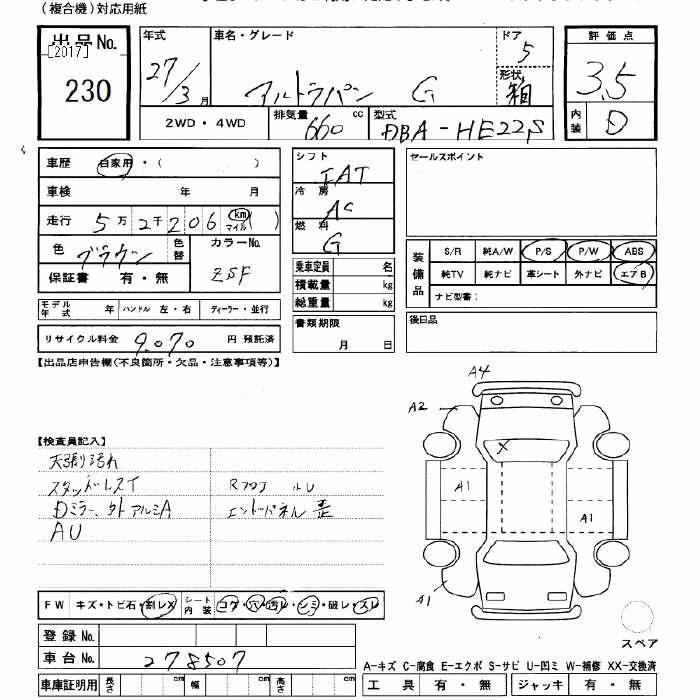 (複合機)対応用紙
出品No.
[2017]
230
年式
27/3月
車名・グレード
アルトラパン G
ドア
5
形状
箱
評価点
3.5
内装
D
2WD・4WD
排気量
660 cc
型式
DBA-HE22S
車歴 自家用・( )
車検 年 月
走行 5万2千206 km マイル ( )
色 ブラウン
色替
カラーNo.
ZSF
保証書 有・無
モデル年式 年 ハンドル 左・右 ディーラー・並行
リサイクル料金 9,070 円 預託済
シフト
IAT
冷房
AC
燃料
G
乗車定員 名
積載量 kg
総重量 kg
書類期限
月 日
セールスポイント
装備品
S/R 純A/W P/S P/W ABS
純TV 純ナビ 革シート 外ナビ エアB
ナビ型番:
後日品
【出品店申告欄(不良箇所・欠品・注意事項等)】
【検査員記入】
天張り汚れ
スタッドレスイ
Dミラー、外アルミA
AU
Rフロア ルU
エンドパネル 歪
FW キズ・トビ石・割レX シート内装 コゲ・穴・汚レ・シミ・破レ・スレ
登録No.
車台No. 278507
車庫証明用 長さ cm 幅 cm 高さ cm
A4
A2
X
A1
A1
A1
スペア
A-キズ C-腐食 E-エクボ S-サビ U-凹ミ W-補修 XX-交換済
工具 有・無 ジャッキ 有・無